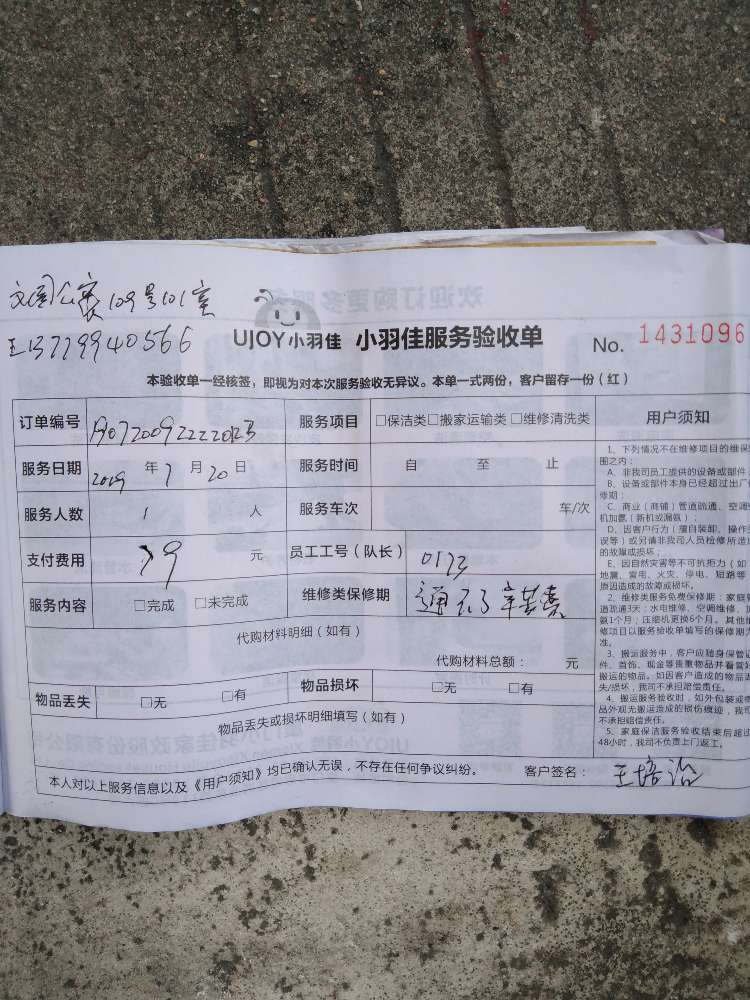 109号101室
13779940566
UJOY小羽佳 小羽佳服务验收单 No. 1431096
本验收单一经核签，即视为对本次服务验收无异议。本单一式两份，客户留存一份（红）
订单编号 服务项目 □保洁类□搬家运输类□维修清洗类 用户须知
服务日期 2019 年 7 月 20 日 服务时间 自 至 止
服务人数 1 人 服务车次 车/次
支付费用 元 员工工号（队长） 0173
服务内容 □完成 □未完成 维修类保修期 通了
代购材料明细（如有）
代购材料总额： 元
物品丢失 □无 □有 物品损坏 □无 □有
物品丢失或损坏明细填写（如有）
本人对以上服务信息以及《用户须知》均已确认无误，不存在任何争议纠纷。 客户签名： 王培
1、下列情况不在维修项目的维保
围之内：
A、非我司员工提供的设备或部件
B、设备或部件本身已经超过出厂
修期；
C、商业（商铺）管道疏通、空调
机加氟（新机或漏氟）；
D、因客户行为（擅自装卸、操作
误等）或另请非我司人员检修所造
的故障或损坏；
E、因自然灾害等不可抗拒力（如
地震、雷电、火灾、停电、短路等
原因造成的故障或损坏。
2、维修类服务免费保修期：家庭
道疏通3天；水电维修、空调维修、
氟1个月；压缩机更换6个月。其他
修项目以服务验收单填写的保修期为
准。
3、搬运服务中，客户应随身保管
件、首饰、现金等贵重物品并看管好
搬运的物品。如因客户造成的物品
失/损坏，我司不承担赔偿责任。
4、搬运服务验收时，如外包装或
品外观无搬运造成的损伤痕迹，我
不承担赔偿责任。
5、家庭保洁服务验收结束后超过
48小时，我司不负责上门返工。